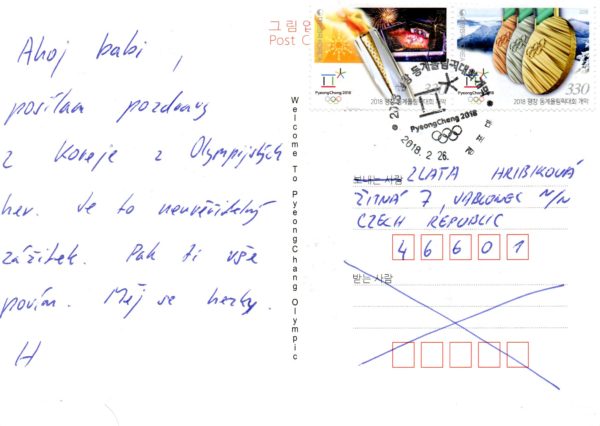 Ahoj babi,
posílam pozdravy
z Koreje z Olympijských
her. Je to neuvěřitelný
zážitek. Pak ti vše
povím. Měj se hezky.
H
그림엽
Post C
Welcome To PyeongChang Olympic
PyeongChang 2018
2018 평창 동계올림픽대회 개막
330
2018 평창 동계올림픽대회 개막
PyeongChang 2018
2018. 2. 26.
보내는 사람 ZLATA HRIBIKOVÁ
ŽITNÁ 7, JABLONEC N/N
CZECH REPUBLIC
46601
받는 사람